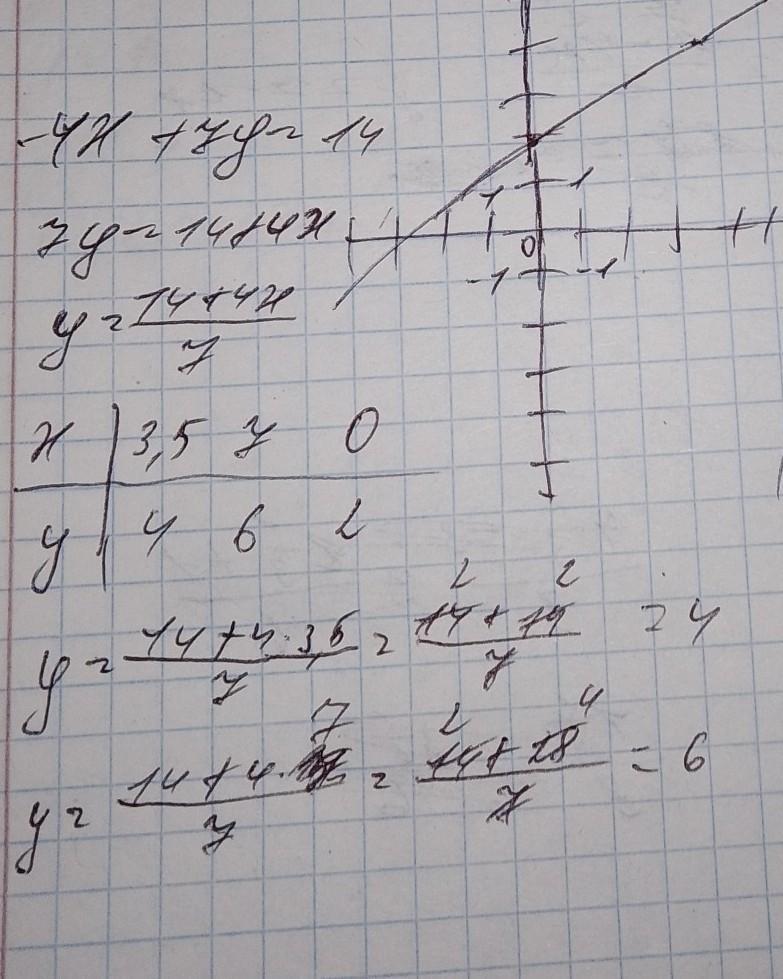 -4x + 7y = 14
7y = 14 + 4x
y = (14 + 4x)/7
x | 3,5 7 0
y | 4 6 2
y = (14 + 4 · 3,5)/7 = (14 + 14)/7 = 4
2 2
y = (14 + 4 · 7)/7 = (14 + 28)/7 = 6
2 4
1 1
0
-1 -1